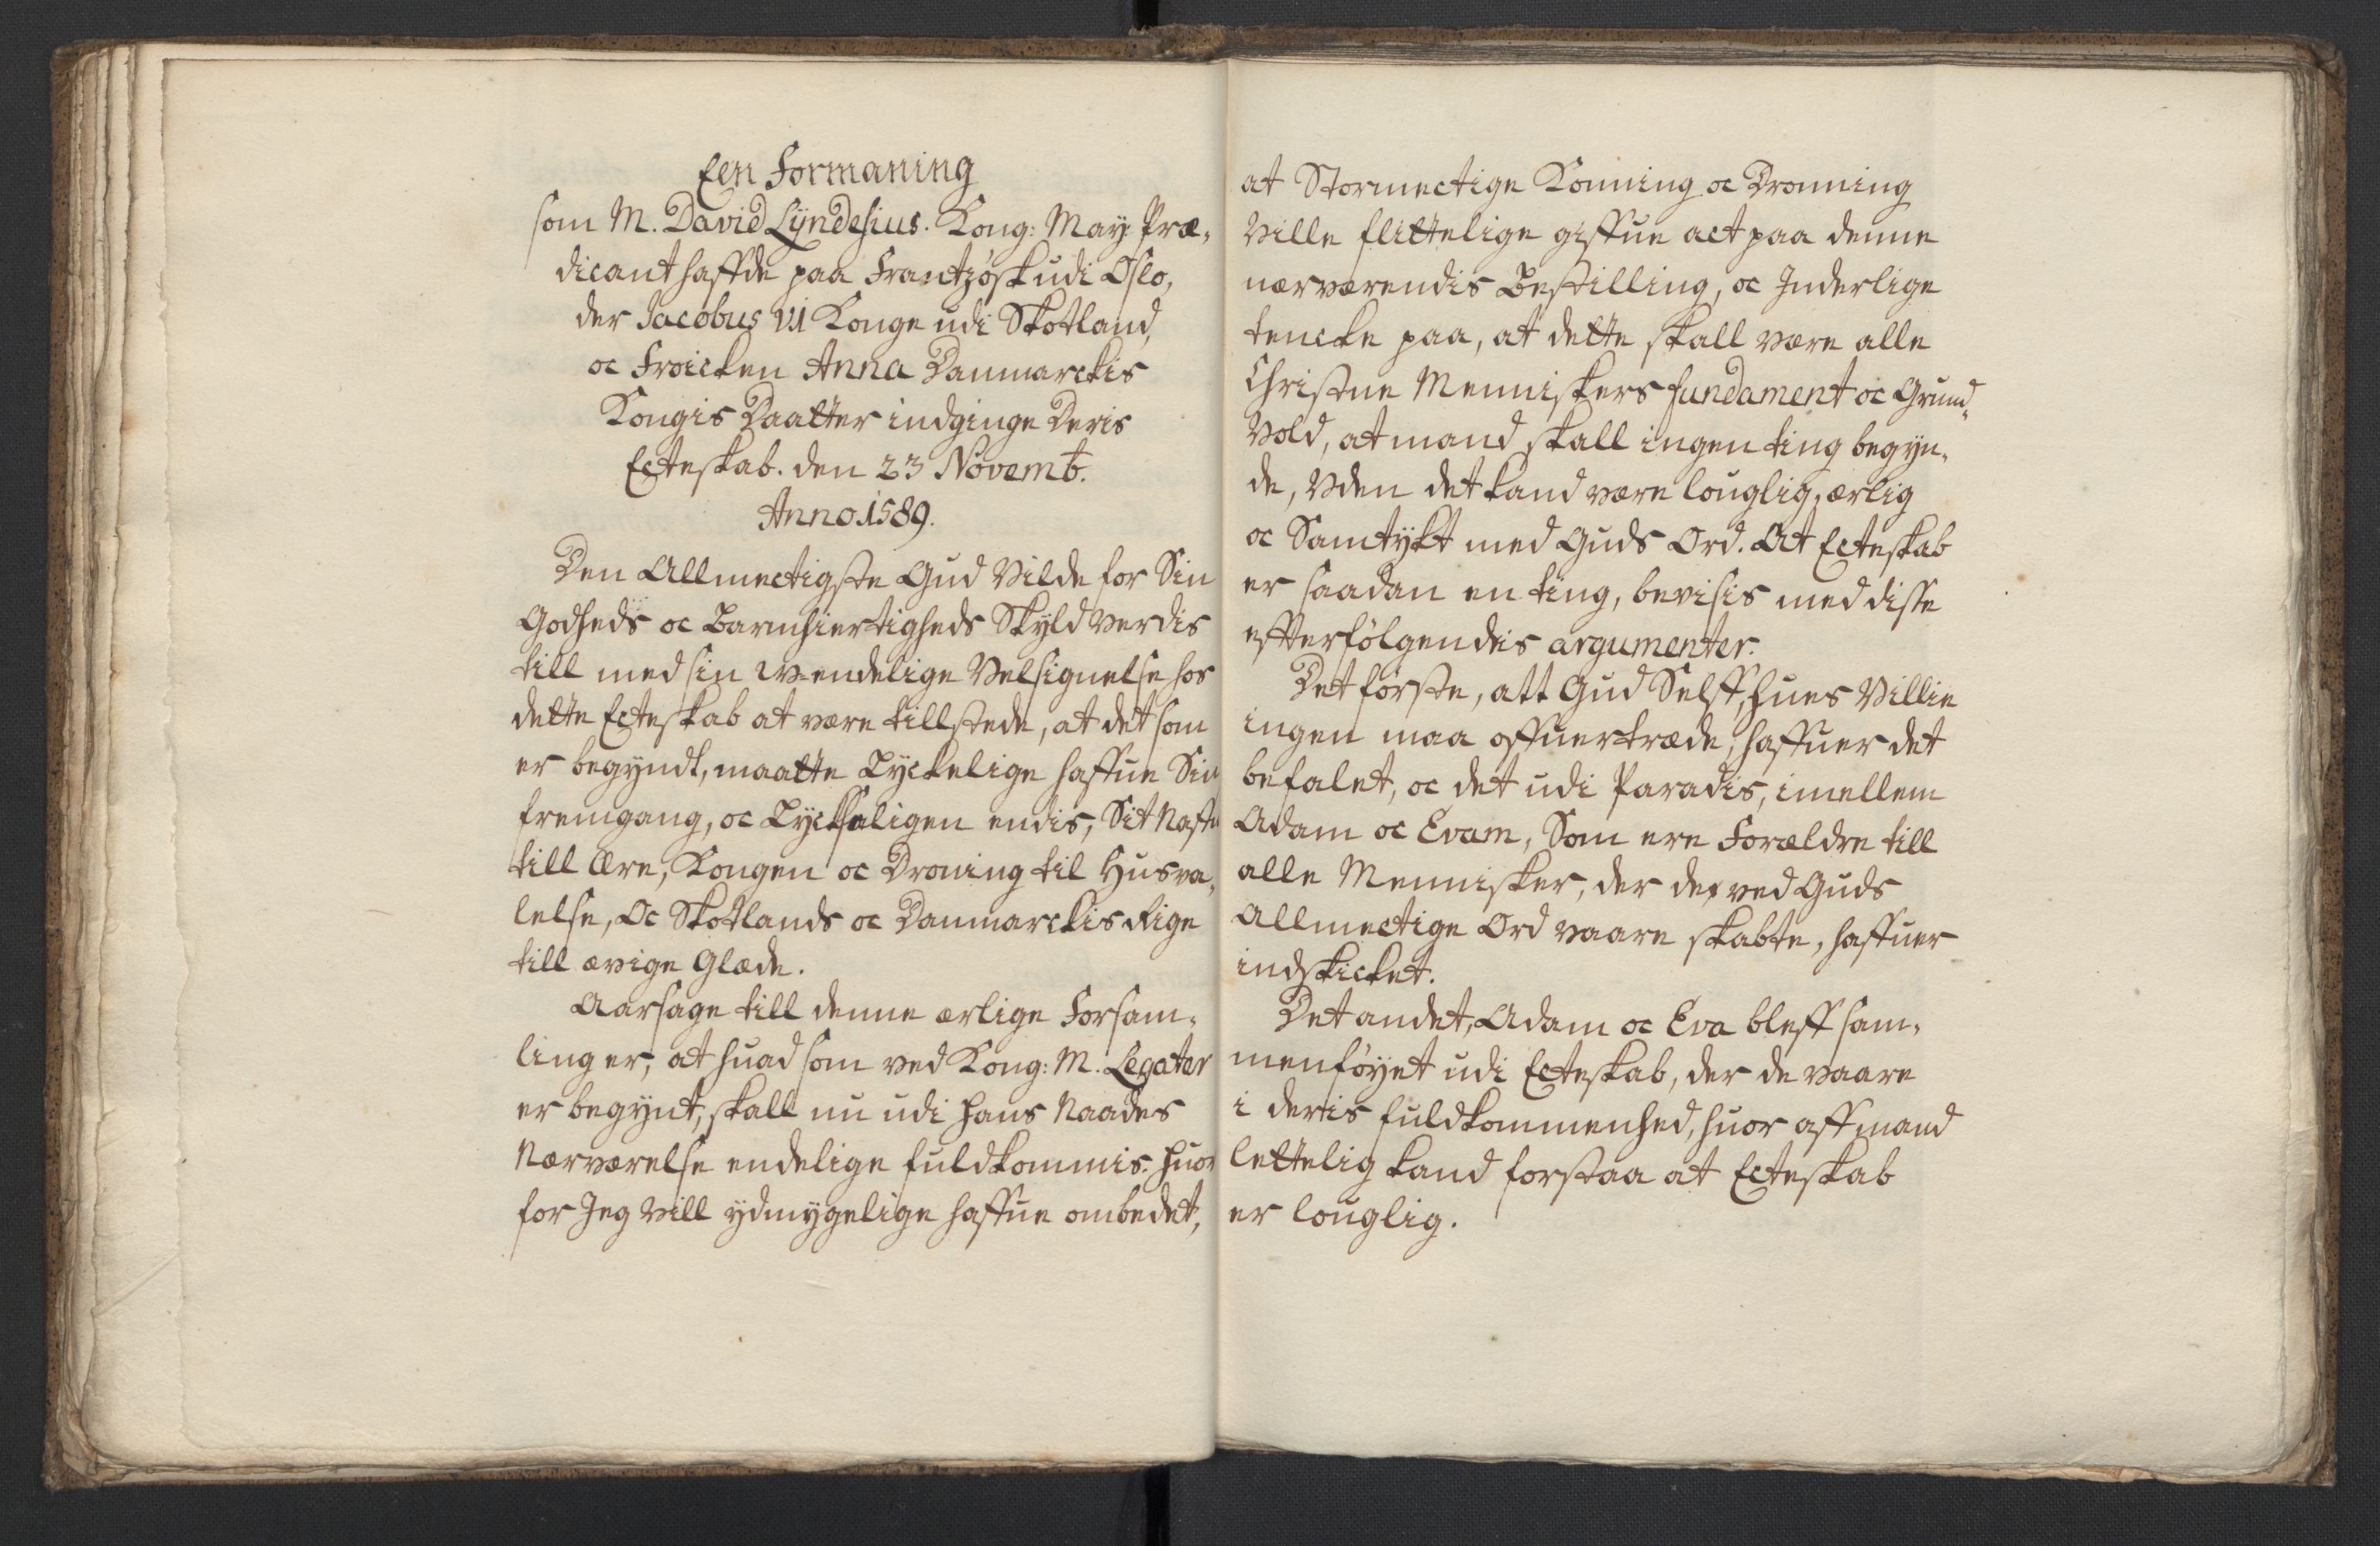 Een Formaning
som M. David Lyndesius. Kong: May: Præ-
dicant haffde paa Frantzösk udi Oslo,
der Jacobus VI Konge udi Skotland,
oc Froicken Anna Danmarckis
Kongis Daatter indginge Deris
Ecteskab. den 23 Novemb.
Anno 1589.
Den Allmectigste Gud Vilde for Sin
Godheds oc Barmhiertigheds Skyld Verdis
till med sin w-endelige Velsignelse hos
dette Ecteskab at være tillstede, at det som
er begyndt, maatte Lyckelige haffue Sin
fremgang, oc Lycksaligen endis, Sit Naffn
till Ære, Kongen oc Droning til Husva-
lelse, Oc Skotlands oc Danmarckis Rige
till ævige Glæde.
Aarsage till denne ærlige Forsam-
ling er, at huad som ved Kong: M. Legater
er begynt, skall nu udi Hans Naades
Nærværelse endelige fuldkommis. Huor
for Jeg Vill ydmygelige haffue ombedet,
at Stormectige Konning oc Dronning
Ville flittelige giffue act paa denne
nærværendis Bestilling, oc Inderlige
tencke paa, at dette skall være alle
Christne Menniskers fundament oc Grund-
Vold, at mand skall ingen ting begyn-
de, Uden det kand være louglig, ærlig
oc Samtykt med Guds Ord. At Ecteskab
er saadan en ting, bevisis med disse
effterfölgendis argumenter.
Det förste, att Gud Selff, hues Villie
ingen maa offuertræde, haffuer det
befalet, oc det udi Paradis, imellem
Adam oc Evam, Som ere Forældre till
alle Mennisker, der de ved Guds
Allmectige Ord vaare skabte, haffuer
indskicket.
Det andet, Adam oc Eva bleff sam-
menföyet udi Ecteskab, der de vaare
i deris fuldkommenhed, huor aff mand
lettelig kand forstaa at Ecteskab
er louglig.